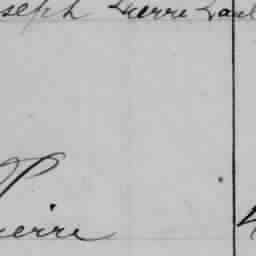 seph Pierre Paul
Pierre